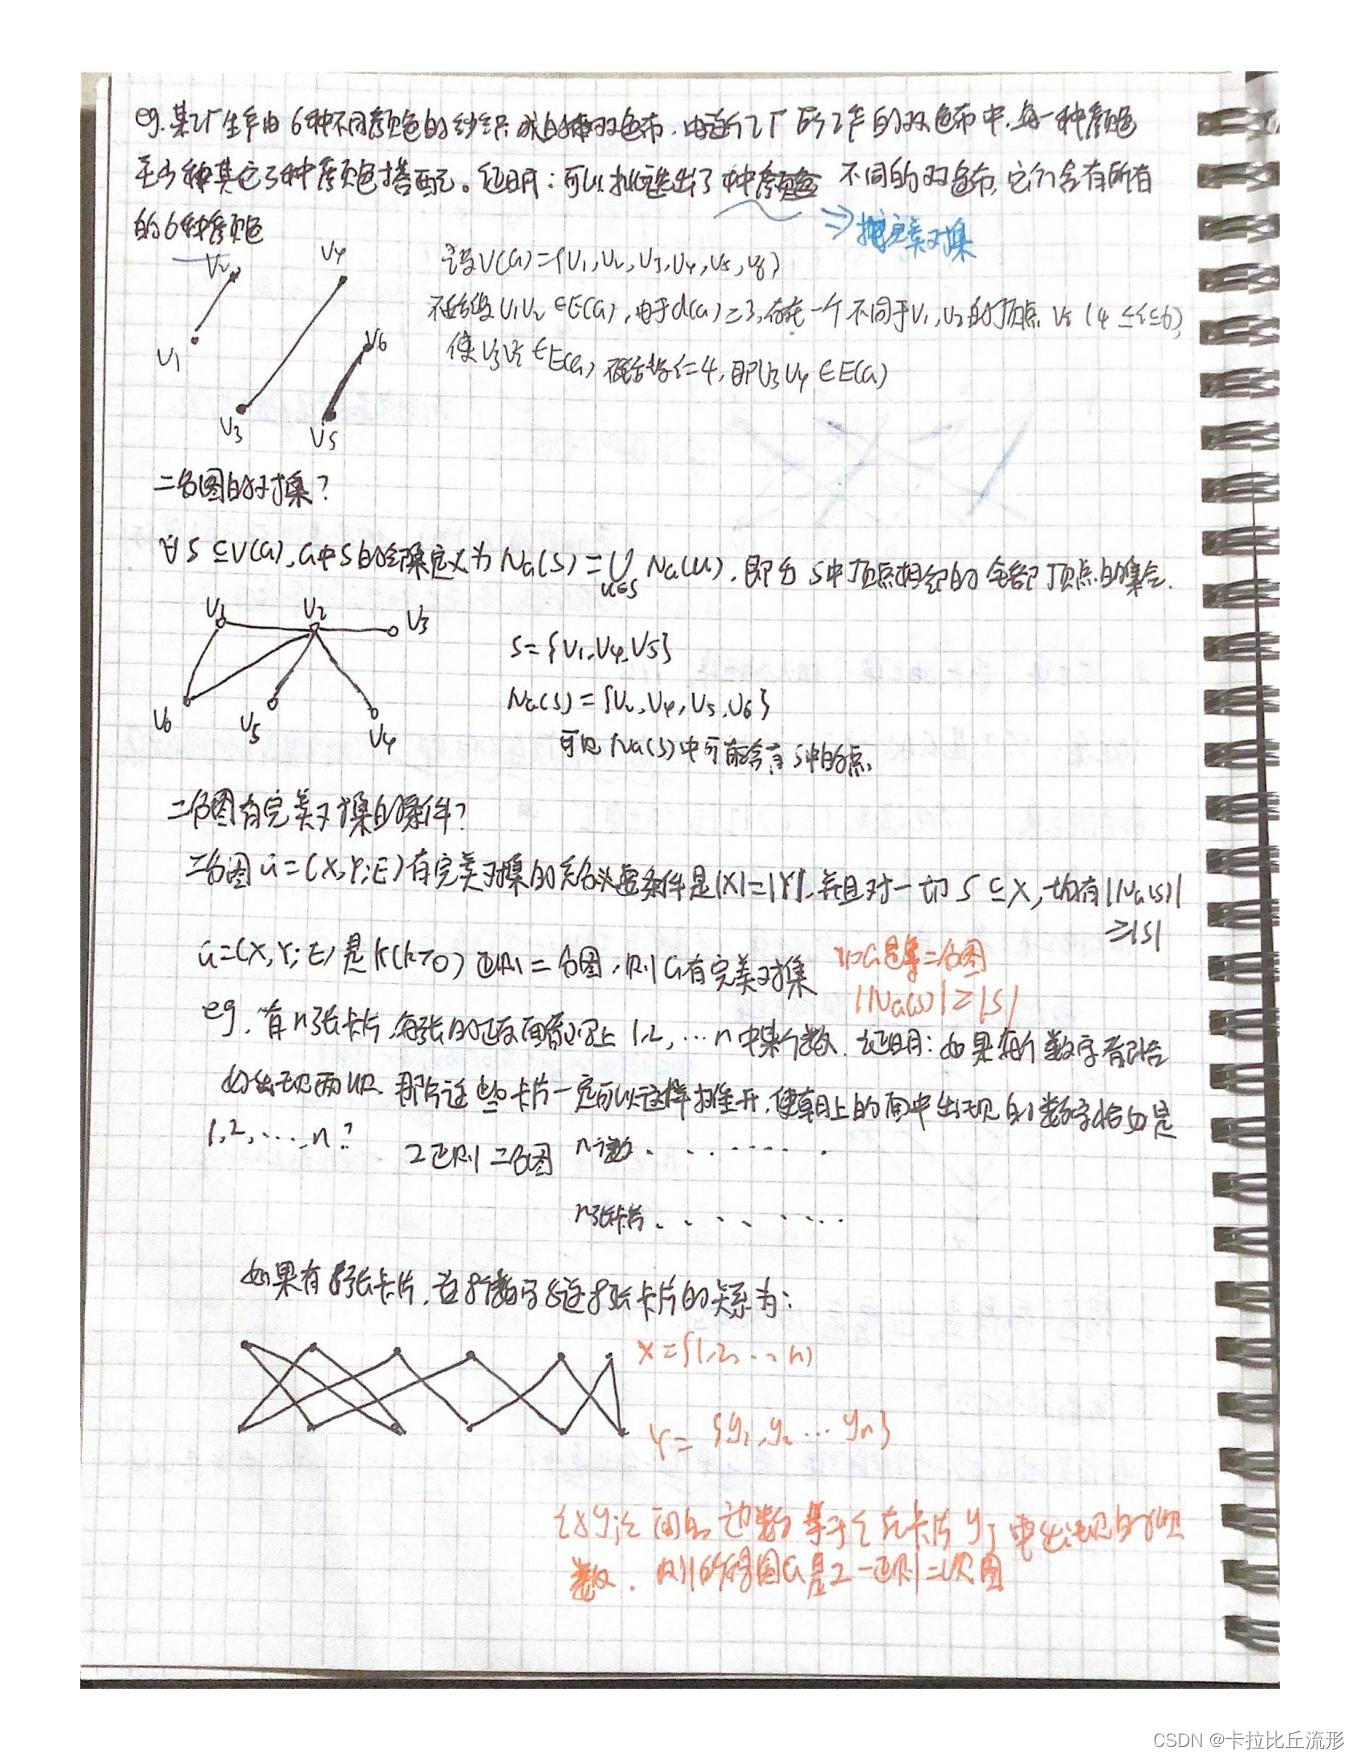 eg. 某工厂生产由6种不同颜色的纱织成的双色布,由这个工厂所生产的双色布中,每一种颜色
至少和其它3种颜色搭配。证明:可以挑选出3种颜色不同的双色布,它们含有所有
的6种颜色
⇒完美对集
V2 V4
V1 V6
V3 V5
设V(G)={V1,V2,V3,V4,V5,V6}
不妨设V1V2∈E(G),由于d(G)≥3,存在一个不同于V1,V2的顶点Vi(4≤i≤6)
使V3Vi∈E(G),不妨设i=4,即V3V4∈E(G)
二分图的对集?
∀S⊆V(G),G中S的邻集定义为NG(S)=∪NG(u),即与S中顶点相邻的全部顶点的集合.
u∈S
V1 V2 V3
V6 V5 V4
S={V1,V4,V5}
NG(S)={V2,V4,V5,V6}
可见NG(S)中可能含有S中的点
二分图有完美对集的条件?
二分图G=(X,Y;E)有完美对集的充分必要条件是|X|=|Y|,并且对一切S⊆X,均有|NG(S)|
≥|S|
G=(X,Y;E)是k(k>0)正则二分图,则G有完美对集
二分图
|NG(S)|≥|S|
eg.有n张卡片,每张的正反面都写上1,2,…n中某个数.证明:如果每个数字都恰
好出现两次,那么这些卡片一定可以这样摊开,使朝上的面中出现的数字恰好是
1,2,…,n?
2正则二分图 n个数. . . . . . . .
n张卡片. . . . . . . .
如果有8张卡片,若8个数字与这8张卡片的关系为:
X={1,2,…,n}
Y={y1,y2…yn}
i与yj之间的边数等于i在卡片yj中出现的次
数.则所得图G是2-正则二次图
CSDN @卡拉比丘流形